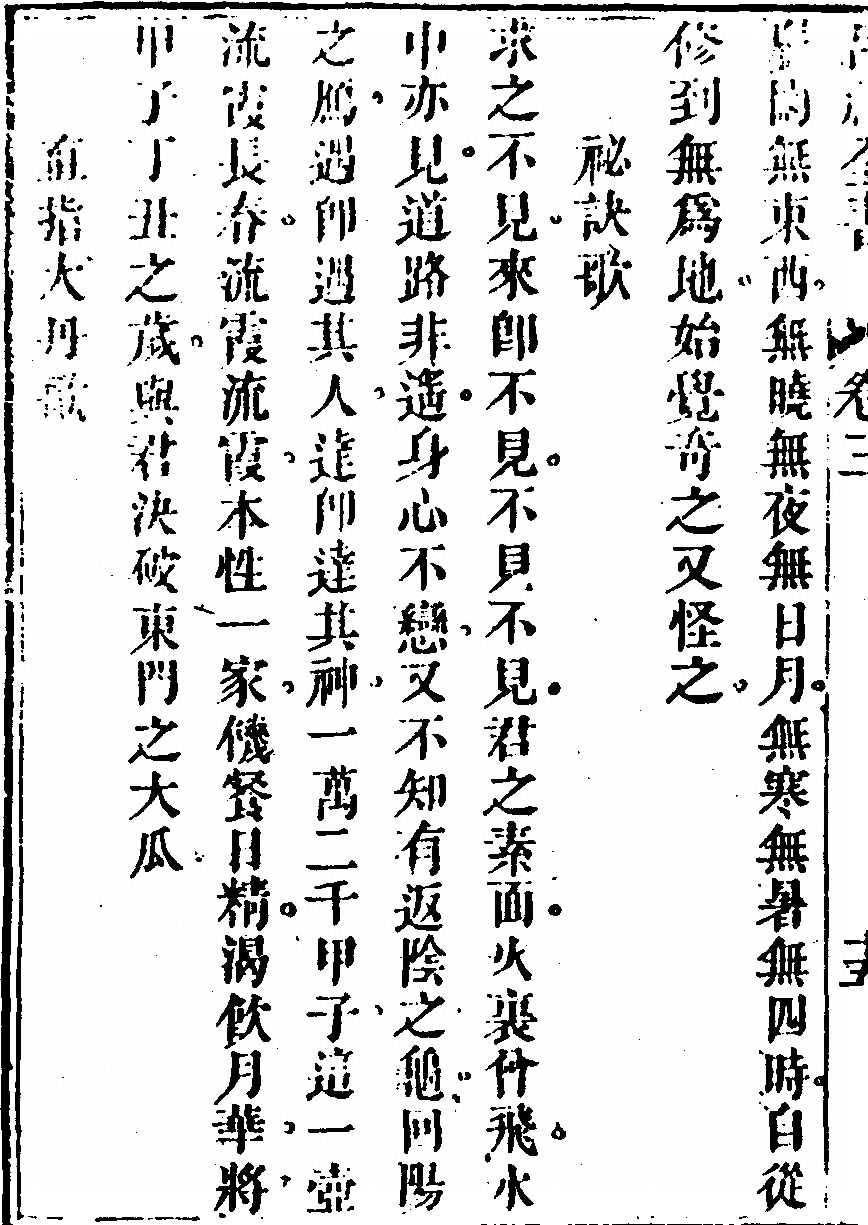 無東西無曉無夜無日月無寒無暑無四時自從
修到無爲地始覺奇之又怪之
祕訣歌
求之不見來卽不見不見不見君之素面火裏什飛水
中亦見道路非遥身心不戀又不知有返陰之龜回陽
之鴈遇卽遇其人達卽達其神一萬二千甲子這一壺
流霞長春流霞流霞本性一家饑餐日精渴飲月華將
甲子丁丑之歲與君決破東門之大瓜
直指大丹歌
卷三